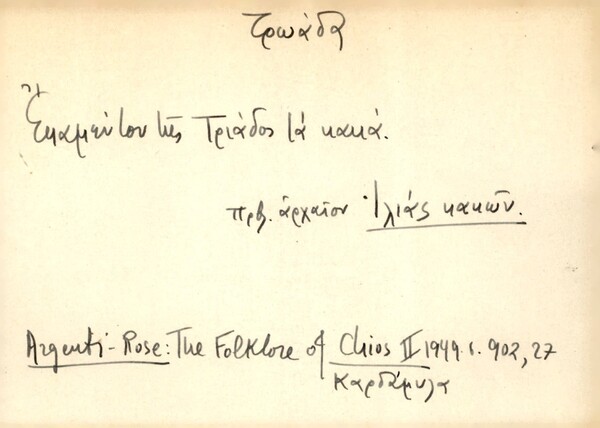 Τρωάδα
Ἔκαμέν του τῆς Τριάδος τά κακά.
πρβ. ἀρχαῖον Ἰλιάς κακῶν.
Argenti-Rose: The Folklore of Chios II 1949. σ. 902, 27
Καρδάμυλα